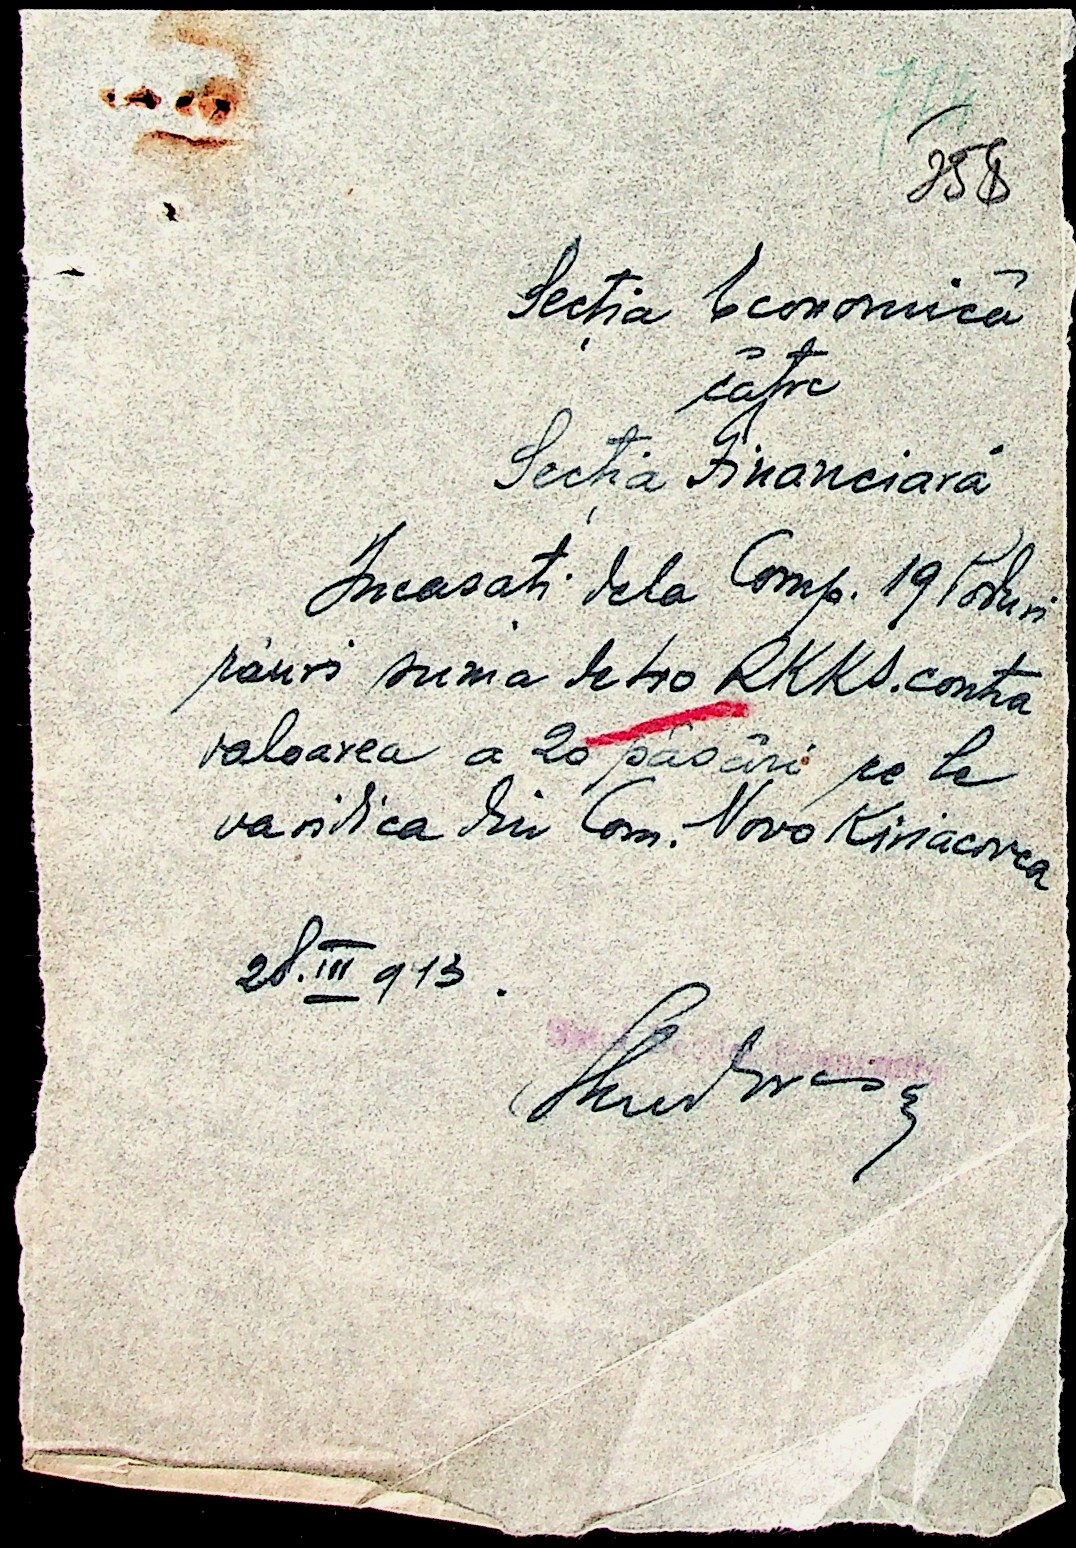 358
Secția Economică
către
Secția Financiară
Incasati dela Comp. 19 Poduri
râuri suma de 40 RKKS. contra
valoarea a 20 păsări ce le
va ridica din Com. Novo Kiriacovca
28.III 943.